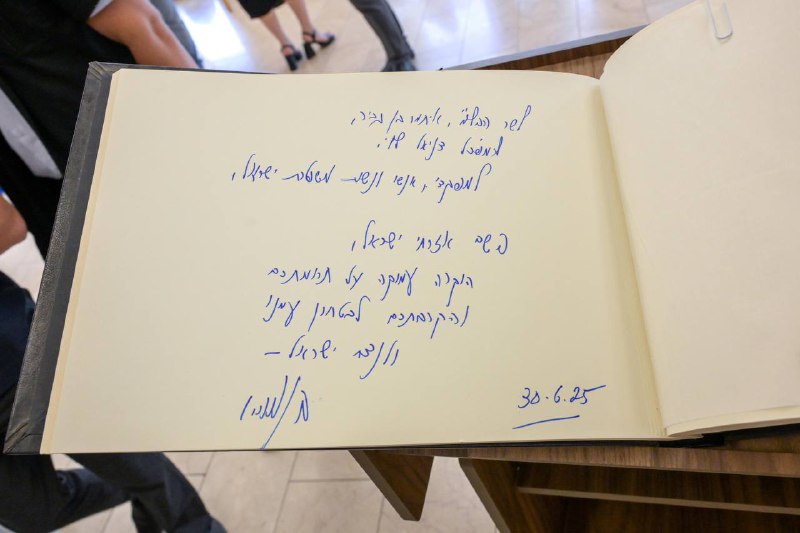 לשר הבט"פ, איתמר בן גביר,
למפכ"ל דניאל לוי,
למפקדי, אנשי ונשות משטרת ישראל,
בשם אזרחי ישראל,
הוקרה עמוקה על תרומתכם
והקרבתכם לבטחון עמנו
ולנצח ישראל –
30.6.25